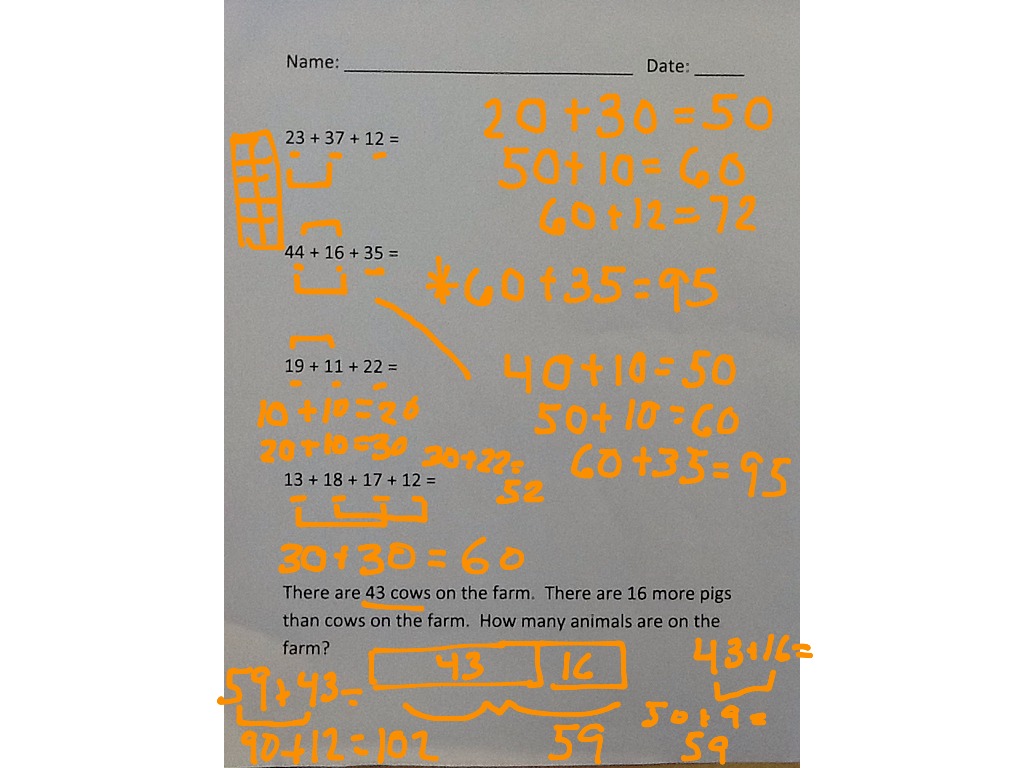 Name: ____________ Date: _____
20+30=50
23 + 37 + 12 =
50+10=60
60+12=72
44 + 16 + 35 =
*60+35=95
19 + 11 + 22 =
40+10=50
10+10=20
50+10=60
20+10=30
20+22=
52
60+35=95
13 + 18 + 17 + 12 =
30+30=60
There are 43 cows on the farm. There are 16 more pigs
than cows on the farm. How many animals are on the
farm?
43
16
43+16=
59+43=
50+9=
59
90+12=102
59